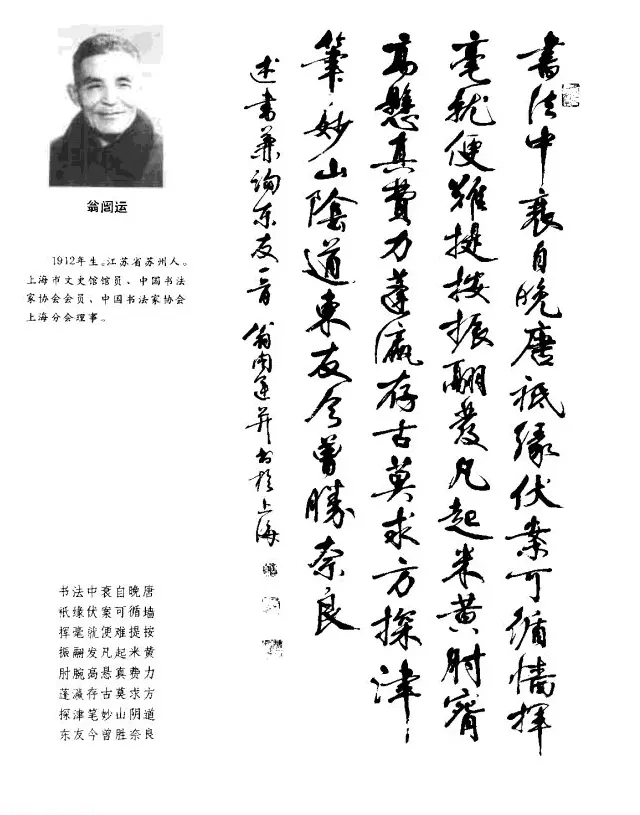 翁闿运
1912年生。江苏省苏州人。
上海市文史馆馆员、中国书法
家协会会员、中国书法家协会
上海分会理事。
書法中衰自晚唐祗缘伏案可循墻揮
毫就便難提按振翮發凡起米黄肘
高懸真費力蓬瀛存古莫求方探津
筆妙山陰道東友今曾勝奈良
述書兼詢东友一首 翁闿運并書於上海
书法中衰自晚唐
祇缘伏案可循墙
挥毫就便难提按
振翮发凡起米黄
肘腕高悬真费力
蓬瀛存古莫求方
探津笔妙山阴道
东友今曾胜奈良